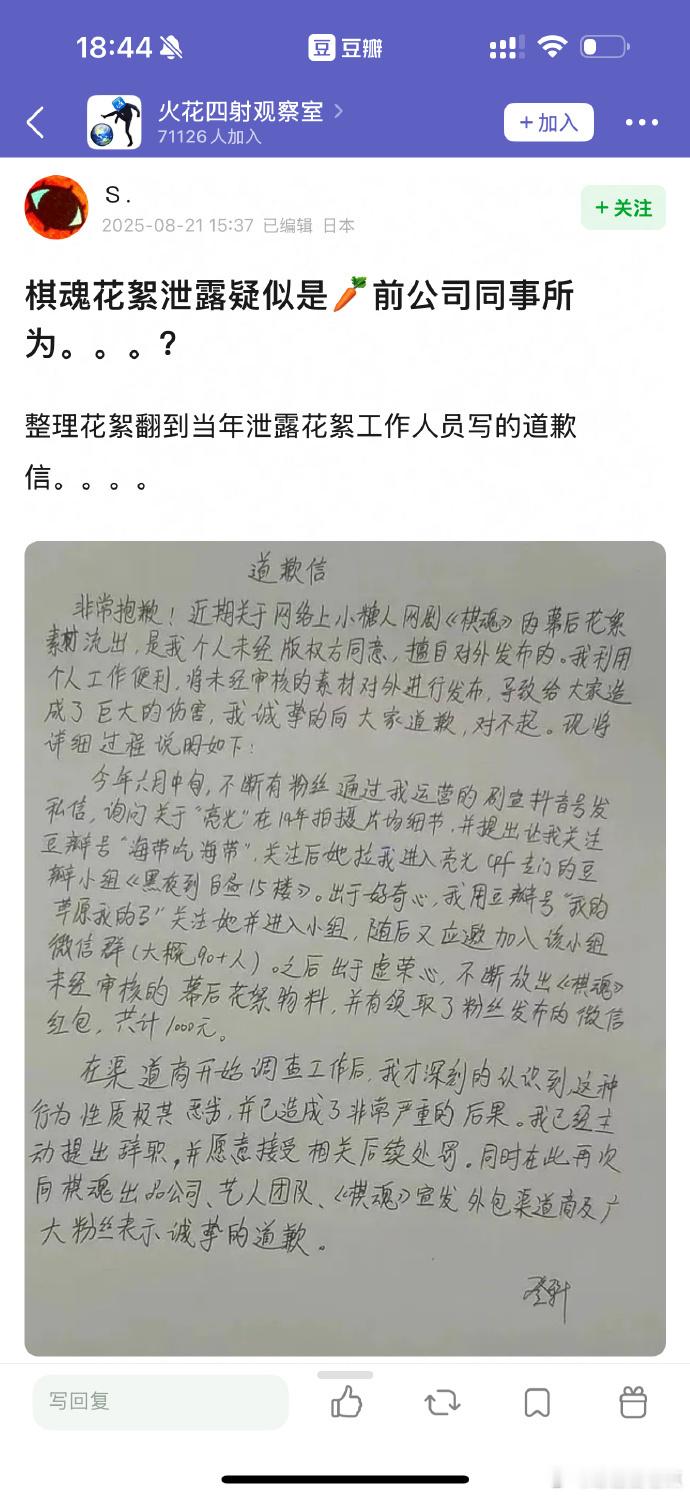 18:44
豆 豆瓣
火花四射观察室
71126人加入
+加入
S.
2025-08-21 15:37 已编辑 日本
+关注
棋魂花絮泄露疑似是🥕前公司同事所
为。。。？
整理花絮翻到当年泄露花絮工作人员写的道歉
信。。。。
道歉信
非常抱歉！近期关于网络上小糖人网剧《棋魂》内幕后花絮
素材流出，是我个人未经版权方同意，擅自对外发布的。我利用
个人工作便利，将未经审核的素材对外进行发布，导致给大家造
成了巨大的伤害，我诚挚的向大家道歉，对不起。现将
详细过程说明如下：
今年六月中旬，不断有粉丝通过我运营的剧宣抖音号发
私信，询问关于“亮光”在19年拍摄片场细节，并提出让我关注
豆瓣号“海带吃海带”，关注后她拉我进入亮光cp粉专门的豆
瓣小组《黑夜到白昼15楼》。出于好奇心，我用豆瓣号“我的
草原我的马”关注她并进入小组，随后又应邀加入该小组
微信群（大概90+人）。之后出于虚荣心，不断放出《棋魂》
未经审核的幕后花絮物料，并有领取了粉丝发布的微信
红包，共计1000元。
在渠道商开始调查工作后，我才深刻的认识到，这种
行为性质极其恶劣，并已造成了非常严重的后果。我已经主
动提出辞职，并愿意接受相关后续处罚。同时在此再次
向棋魂出品公司、艺人团队、《棋魂》宣发外包渠道商及广
大粉丝表示诚挚的道歉。
写回复